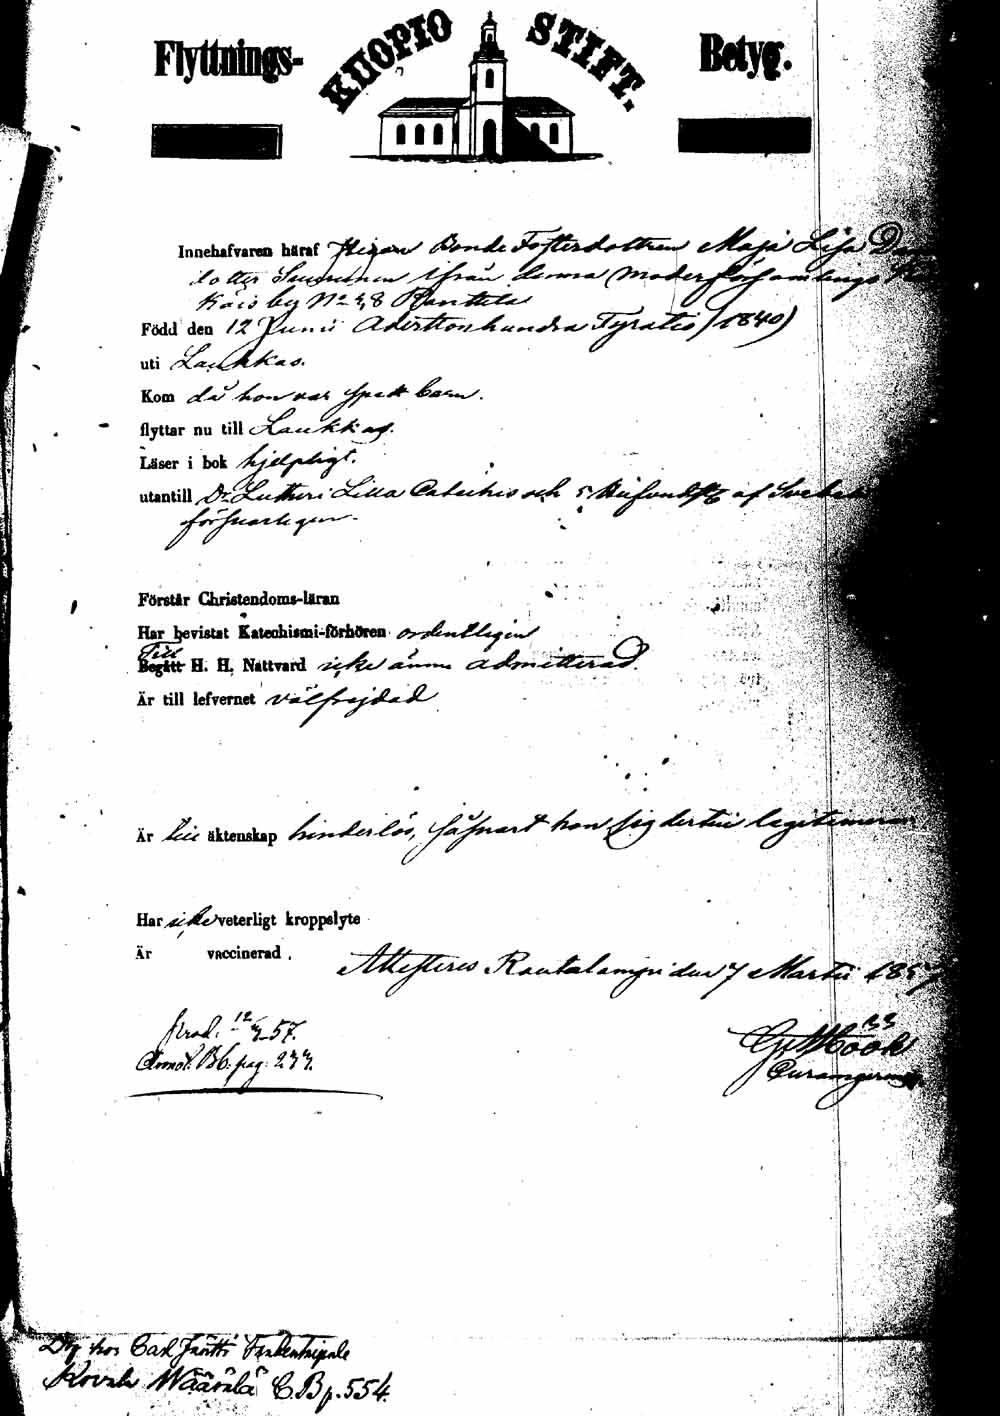 Flyttnings- KUOPIO STIFT. Betyg.
Innehafvaren häraf Pigan Bonde Fosterdottren Maja Lisa
dotter ifrån denna Moderförsamlings
by No 28 Ranttila
Född den 12 Junii Adertonhundra Fyratio (1840)
uti Laukkas.
Kom då hon var spätt barn.
flyttar nu till Laukkas.
Läser i bok hjelpligt.
utantill Dr Lutheri Lilla Cateches och 5 Hufvudst af
försvarligen.
Förstår Christendoms-läran
Har bevistat Katechismi-förhören ordentligen
Till
Begått H. H. Nattvard icke ännu admitterad.
Är till lefvernet välfrejdad
Är till äktenskap hinderlös, såsnart hon sig dertill legitimerar
Har icke veterligt kroppslyte
Är vaccinerad.
Attesteras Rautalampi den 7 Martii 1857
Prod. 12/ 57.
Annot. B6. pag: 277.
Höök
Dtg hos Carl
C.B p. 554.